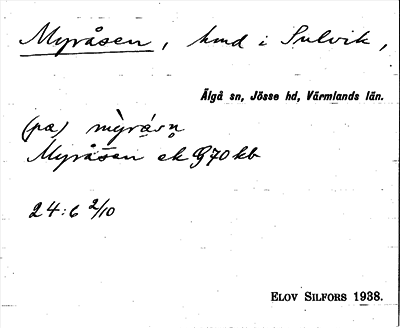 Myråsen, hmd i Sulvik,
Älgå sn, Jösse hd, Värmlands län.
(på)
Myråsen ek 970 kb
24:6 2/10
ELOV SILFORS 1938.